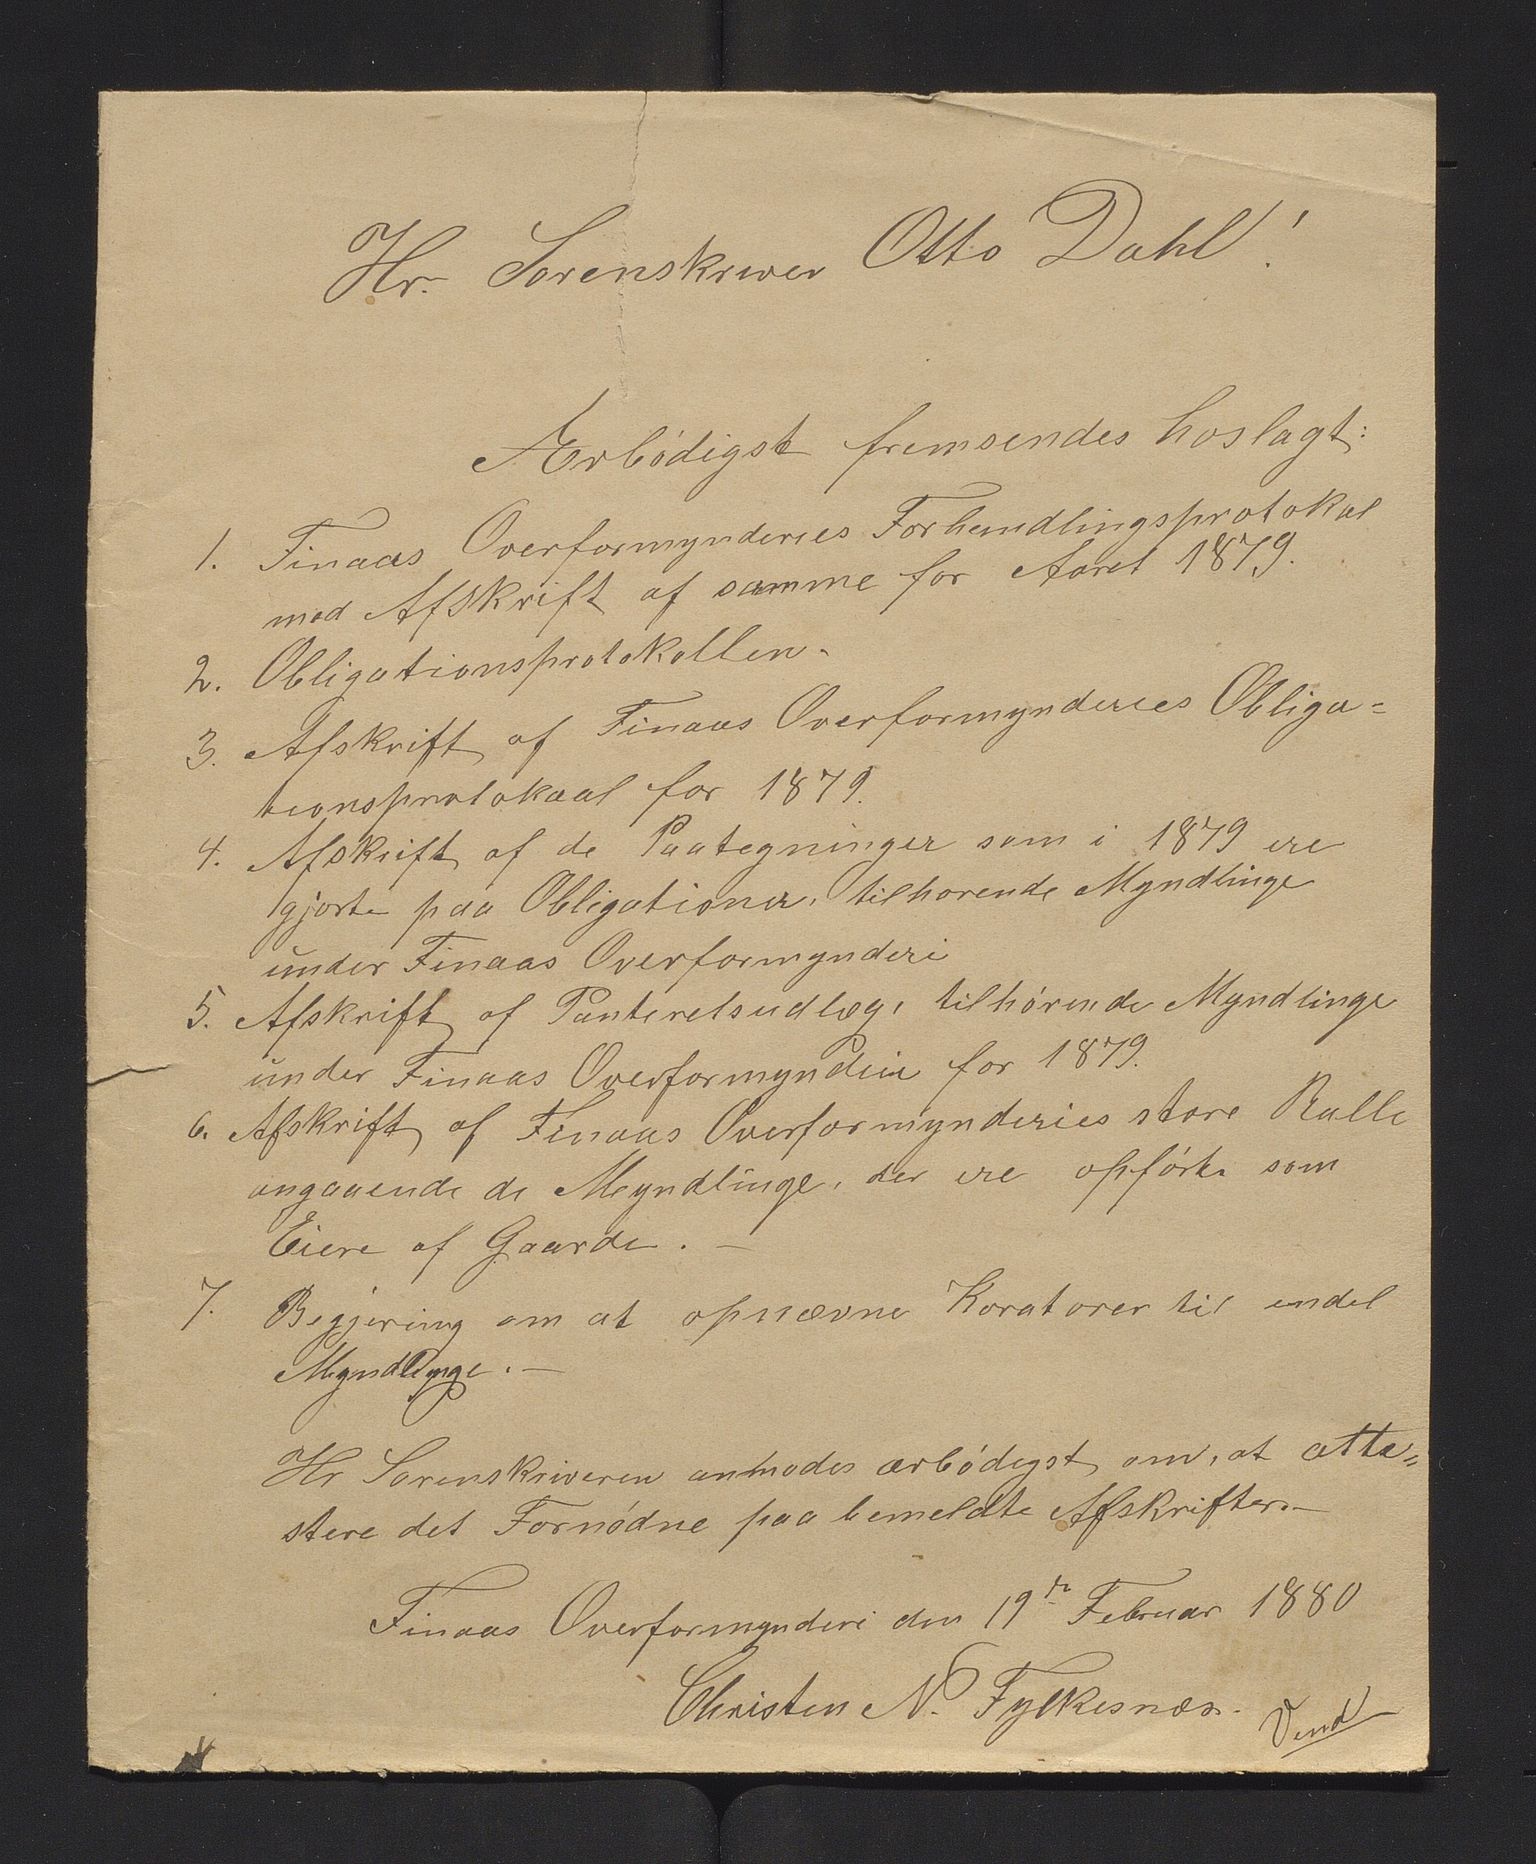 Hr. Sorenskriver Otto Dahl!
Ærbödigst fremsendes hoslagt:
1. Finaas Overformynderies Forhandlingsprotokal
med Afskrift af samme for Aaret 1879.
2. Obligationsprotokollen.
3. Afskrift af Finaas Overformynderies Obliga=
tionsprotokaal for 1879.
4. Afskrift af de Paategninger som i 1879 ere
gjorte paa Obligationer, tilhorende Myndlinge
under Finaas Overformynderi
5. Afskrift af Panteretsudlæg, tilhörende Myndlinge
under Finaas Overformynderi for 1879.
6. Afskrift af Finaas Overformynderies store Rulle
angaaende de Myndlinge, der ere opförte som
Eiere af Gaarde. —
7. Begjering om at opnævne Koratorer til endel
Myndlinge. —
Hr Sorenskriveren anmodes ærbödigst om, at atte=
stere det Fornödne paa bemeldte Afskrifter. —
Finaas Overformynderi den 19de Februar 1880
Christen N. Fylkesnæs.
Vend